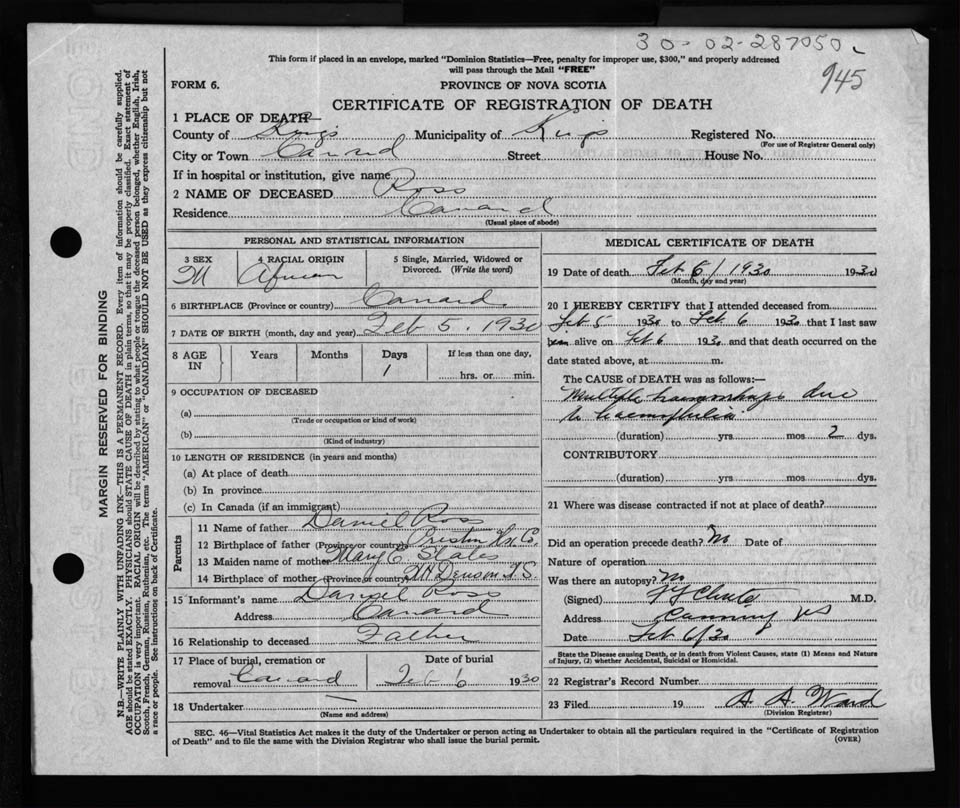 30-02-287050
945
This form if placed in an envelope, marked "Dominion Statistics—Free, penalty for improper use, $300," and properly addressed
will pass through the Mail "FREE"
FORM 6.
PROVINCE OF NOVA SCOTIA
CERTIFICATE OF REGISTRATION OF DEATH
1 PLACE OF DEATH—
County of Kings Municipality of Kings Registered No.
(For use of Registrar General only)
City or Town Canard Street House No.
If in hospital or institution, give name
2 NAME OF DECEASED Ross
Residence Canard
(Usual place of abode)
PERSONAL AND STATISTICAL INFORMATION
3 SEX
M
4 RACIAL ORIGIN
African
5 Single, Married, Widowed or
Divorced. (Write the word)
6 BIRTHPLACE (Province or country) Canard
7 DATE OF BIRTH (month, day and year) Feb 5. 1930
8 AGE
IN
Years
Months
Days
1
If less than one day,
hrs. or min.
9 OCCUPATION OF DECEASED
(a)
(Trade or occupation or kind of work)
(b)
(Kind of industry)
10 LENGTH OF RESIDENCE (in years and months)
(a) At place of death
(b) In province
(c) In Canada (if an immigrant)
Parents
11 Name of father Daniel Ross
12 Birthplace of father (Province or country) Preston Hx Co.
13 Maiden name of mother Mary C States
14 Birthplace of mother (Province or country) N.S.
15 Informant's name Daniel Ross
Address Canard
16 Relationship to deceased Father
17 Place of burial, cremation or
removal Canard
Date of burial
Feb 6 1930
18 Undertaker —
(Name and address)
MEDICAL CERTIFICATE OF DEATH
19 Date of death Feb 6/1930 1930
(Month, day and year)
20 I HEREBY CERTIFY that I attended deceased from
Feb 5 1930 to Feb 6 1930 that I last saw
alive on Feb 6 1930 and that death occurred on the
date stated above, at m.
The CAUSE OF DEATH was as follows:—
Multiple haemorrhage due
to haemophilia
(duration) yrs mos 2 dys.
CONTRIBUTORY
(duration) yrs mos dys.
21 Where was disease contracted if not at place of death?
Did an operation precede death? No Date of
Nature of operation
Was there an autopsy? No
(Signed) M.D.
Address Canning NS
Date Feb 6/30
State the Disease causing Death, or in death from Violent Causes, state (1) Means and Nature
of Injury, (2) whether Accidental, Suicidal or Homicidal.
22 Registrar's Record Number
23 Filed 19 A. A. Ward
(Division Registrar)
SEC. 46—Vital Statistics Act makes it the duty of the Undertaker or person acting as Undertaker to obtain all the particulars required in the "Certificate of Registration
of Death" and to file the same with the Division Registrar who shall issue the burial permit.
(OVER)
MARGIN RESERVED FOR BINDING
N.B.—WRITE PLAINLY WITH UNFADING INK—THIS IS A PERMANENT RECORD. Every item of information should be carefully supplied.
AGE should be stated EXACTLY. PHYSICIANS should STATE CAUSE OF DEATH in plain terms, so that it may be properly classified. Exact statement of
OCCUPATION is very important. RACIAL ORIGIN will be described by stating to what people or tongue the deceased person belonged, whether English, Irish,
Scotch, French, German, Russian, Ruthenian, etc. The terms "AMERICAN" or "CANADIAN" SHOULD NOT BE USED as they express citizenship but not
a race or people. See instructions on back of Certificate.